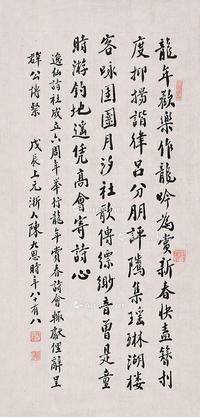 龍年歡樂作龍吟為賞新春快盍簪刻
度抑揚諧律呂分朋評隲集瑤琳湖樓
客咏團圓月汐社歌傳縹緲音曾是童
時游釣地遙凭高會寄詩心
逸仙詩社成立六周年举行龍年賞春詩會輒獻俚辭呈
羣公博粲 戊辰上元浙人陳九思時年八十有八